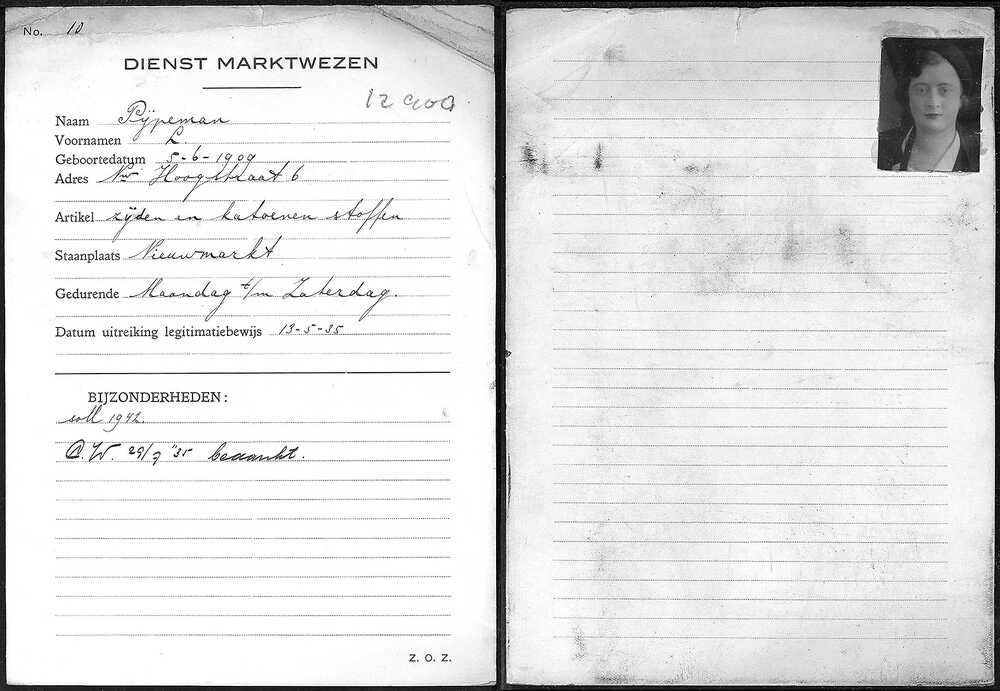 No. 10
DIENST MARKTWEZEN
12 900
Naam Pijpeman
Voornamen L.
Geboortedatum 5-6-1909
Adres Nw Hoogstraat 6
Artikel zijden en katoenen stoffen
Staanplaats Nieuwmarkt
Gedurende Maandag t/m Zaterdag.
Datum uitreiking legitimatiebewijs 13-5-35
BIJZONDERHEDEN:
soll 1942.
C.W. 29/7 "35 bedankt.
Z. O. Z.